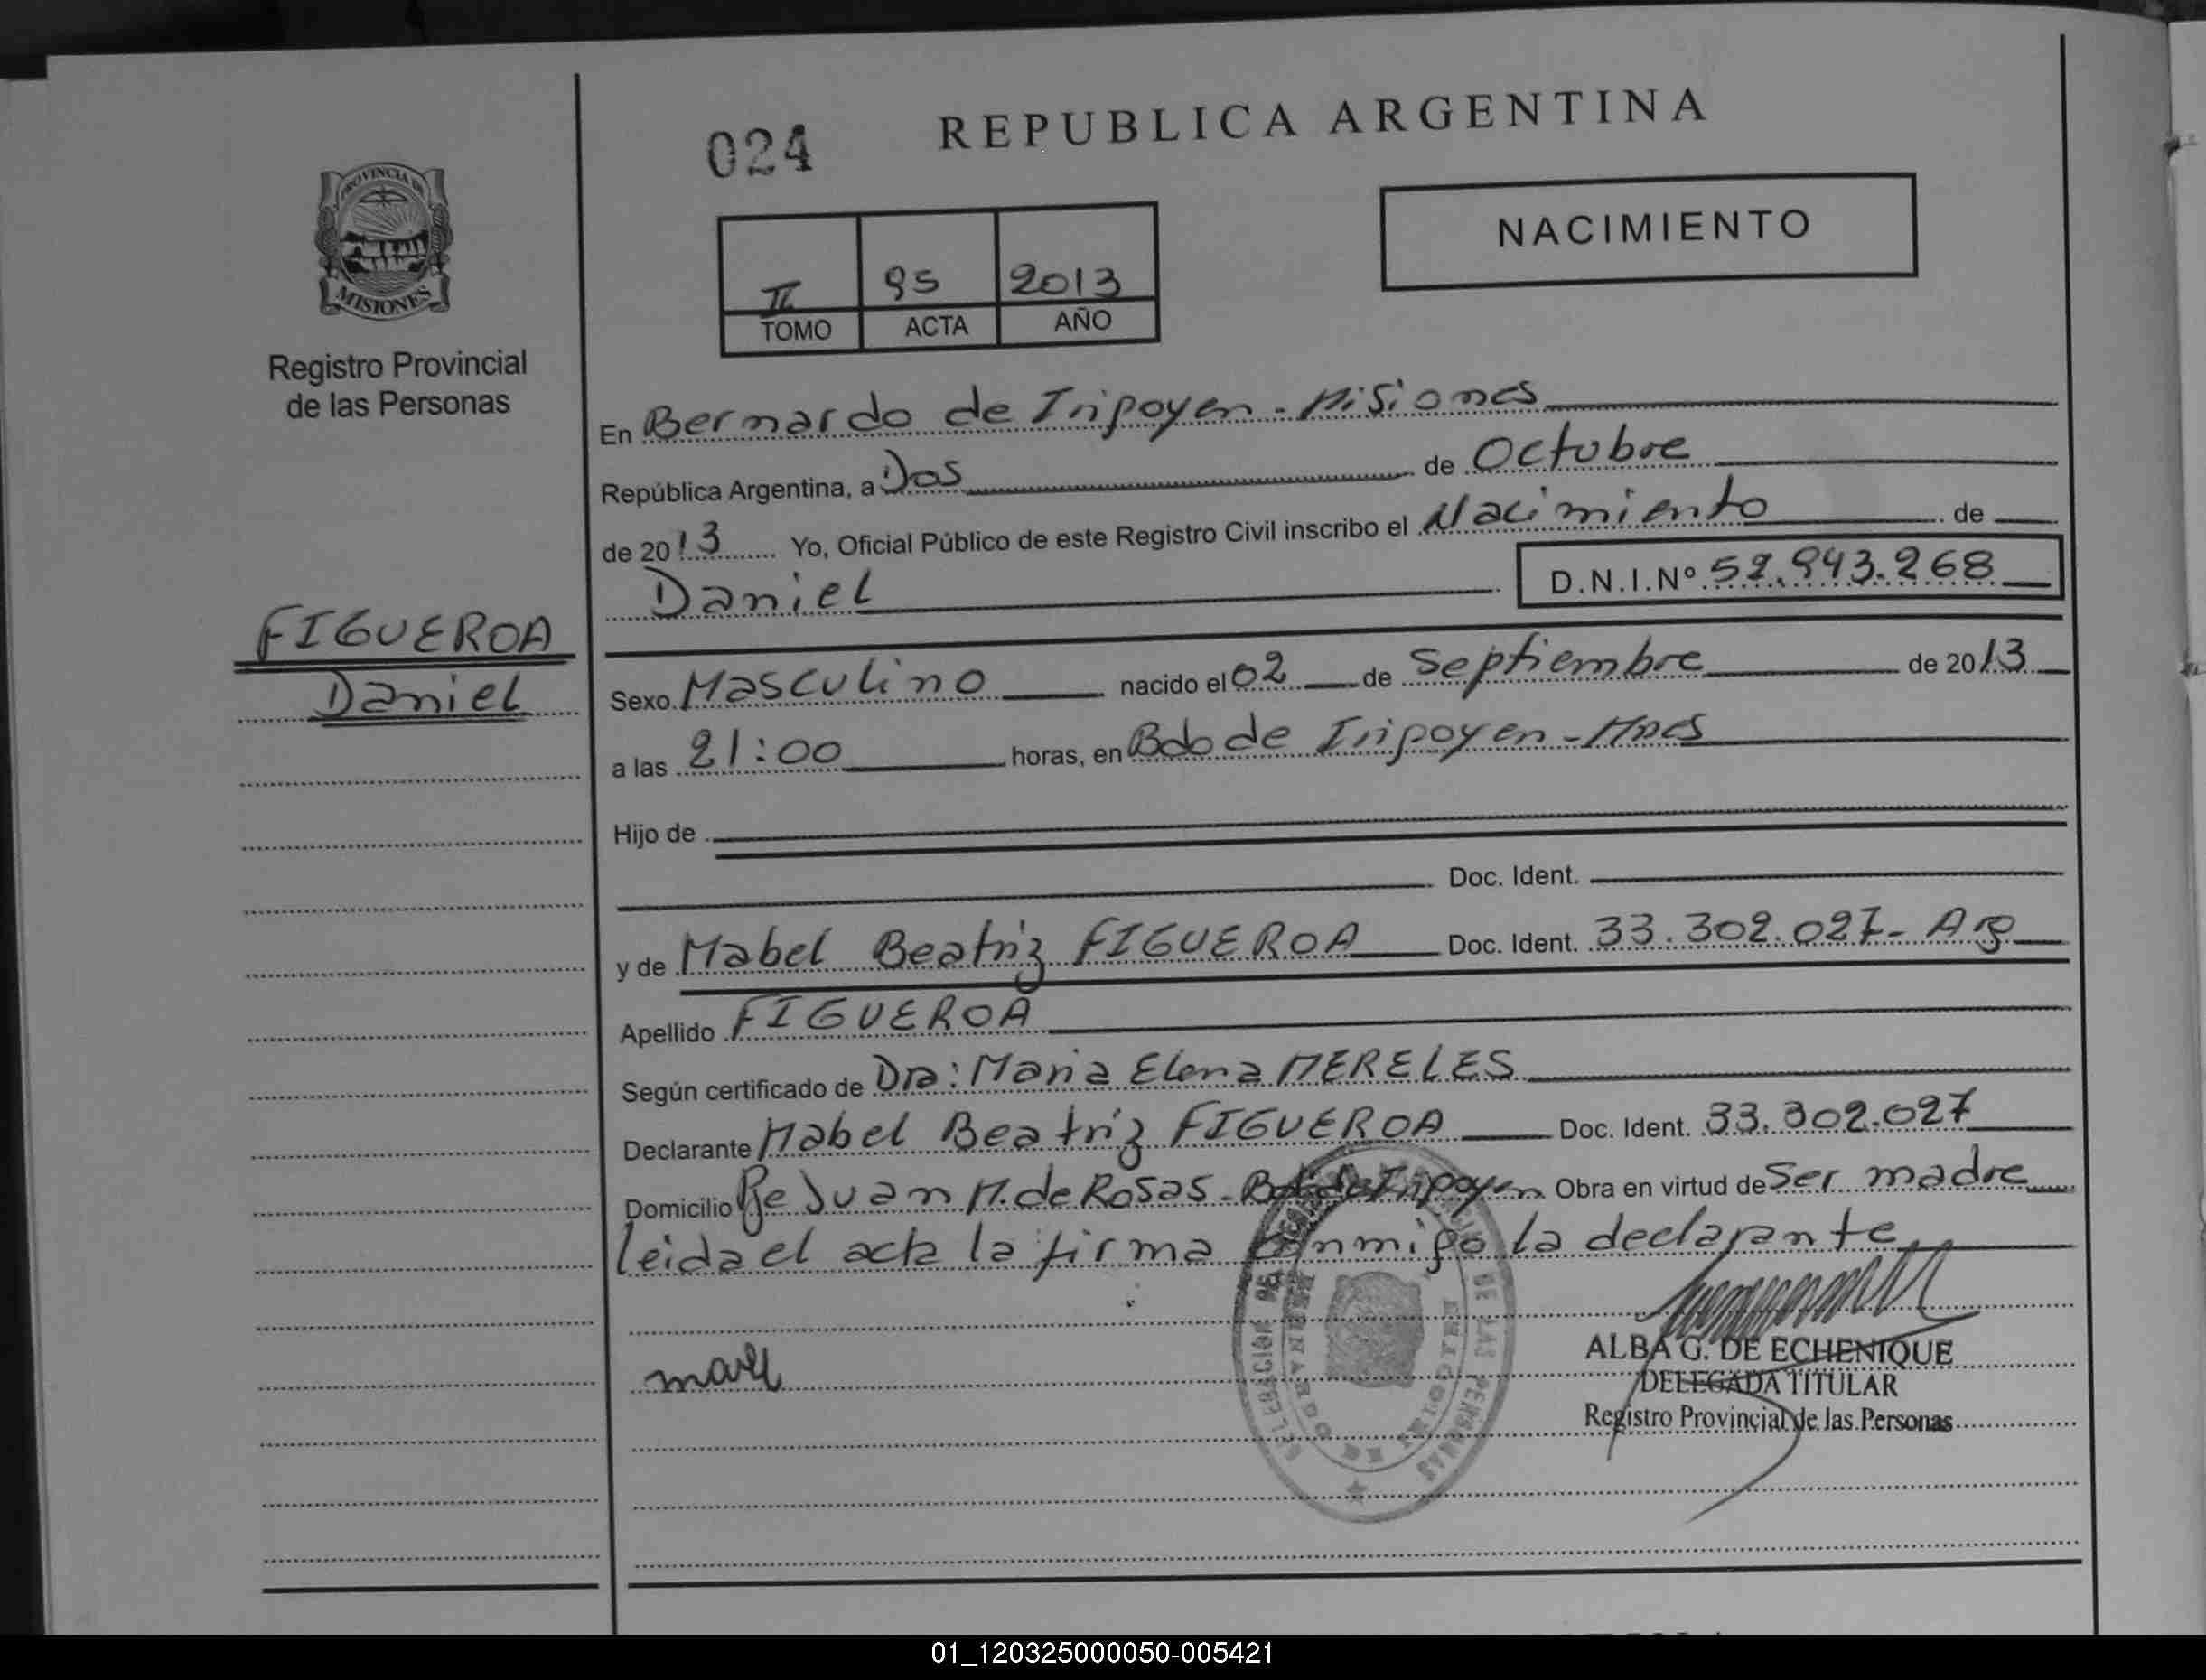 024 REPUBLICA ARGENTINA
PROVINCIA DE
MISIONES
Registro Provincial
de las Personas
NACIMIENTO
II 95 2013
TOMO ACTA AÑO
En Bernardo de Irigoyen - Misiones
República Argentina, a Dos de Octubre
de 2013 Yo, Oficial Público de este Registro Civil inscribo el Nacimiento de
Daniel D.N.I.Nº 52.943.268
FIGUEROA
Daniel
Sexo Masculino nacido el 02 de Septiembre de 2013
a las 21:00 horas, en Bdo de Irigoyen - Mnes
Hijo de
Doc. Ident.
y de Mabel Beatriz FIGUEROA Doc. Ident. 33.302.027- Arg
Apellido FIGUEROA
Según certificado de Dra: Maria Elena MERELES
Declarante Mabel Beatriz FIGUEROA Doc. Ident. 33.302.027
Domicilio Bje Juan M. de Rosas - Bdo de Irigoyen Obra en virtud de Ser madre
leida el acta la firma conmigo la declarante
ALBA G. DE ECHENIQUE
DELEGADA TITULAR
Registro Provincial de las Personas
01_120325000050-005421